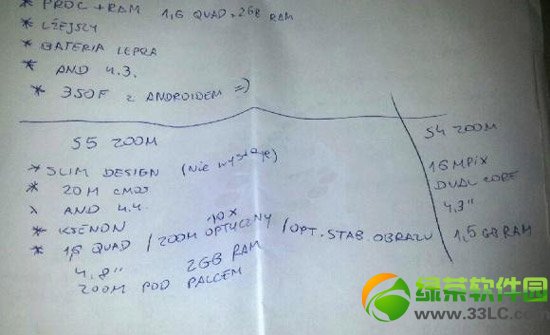 * PROC + RAM 1,6 QUAD + 2GB RAM
* LŻEJSZY
* BATERIA LEPSZA
* AND 4.3.
* 350F z ANDROIDEM =)
S5 ZOOM
* SLIM DESIGN (Nie wystaje)
* 20M CMOS
* AND 4.4.
* KSENON
* 1,6 QUAD / ZOOM OPTYCZNY 10x / OPT. STAB. OBRAZU
4,8" 2GB RAM
ZOOM POD PALCEM
S4 ZOOM
16MPix
DUAL CORE
4,3"
1,5 GB RAM
绿茶软件园
www.33LC.com